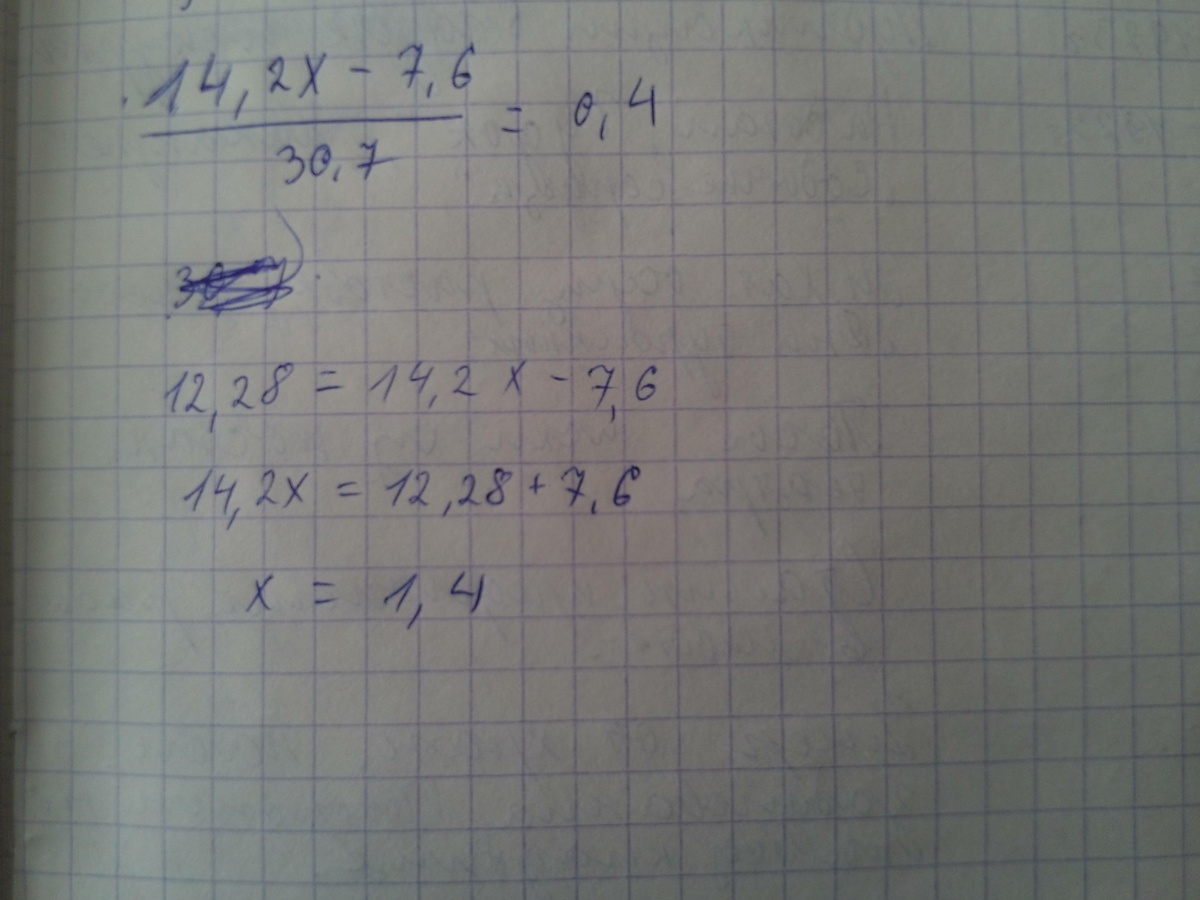 14,2x - 7,6
= 0,4
30,7
12,28 = 14,2x - 7,6
14,2x = 12,28 + 7,6
x = 1,4